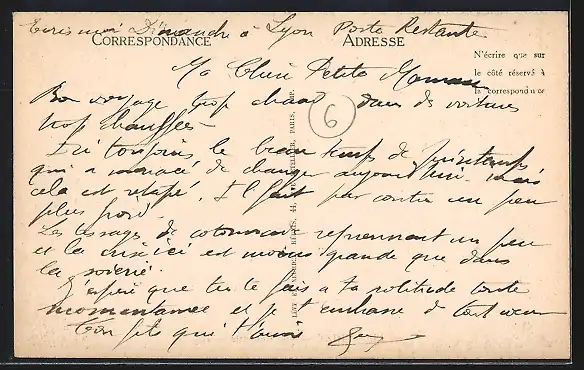 Ecris moi Dimanche à Lyon Poste Restante
CORRESPONDANCE
ADRESSE
N'écrire que sur
le côté réservé à
la correspondance
Ma Chère Petite Maman
6
Bon voyage trop chaud dans des voitures
trop chauffées
Ici toujours le beau temps de printemps
qui a menacé de changer aujourd'hui mais
cela est retapé. Il fait par contre un peu
plus froid.
Les tissages de cotonnade reprennent un peu
et la crise ici est moins grande que dans
la soierie.
J'espère que tu te fais a ta solitude toute
momentanée et je t'embrasse de tout coeur
Ton fils qui t'aime Guy